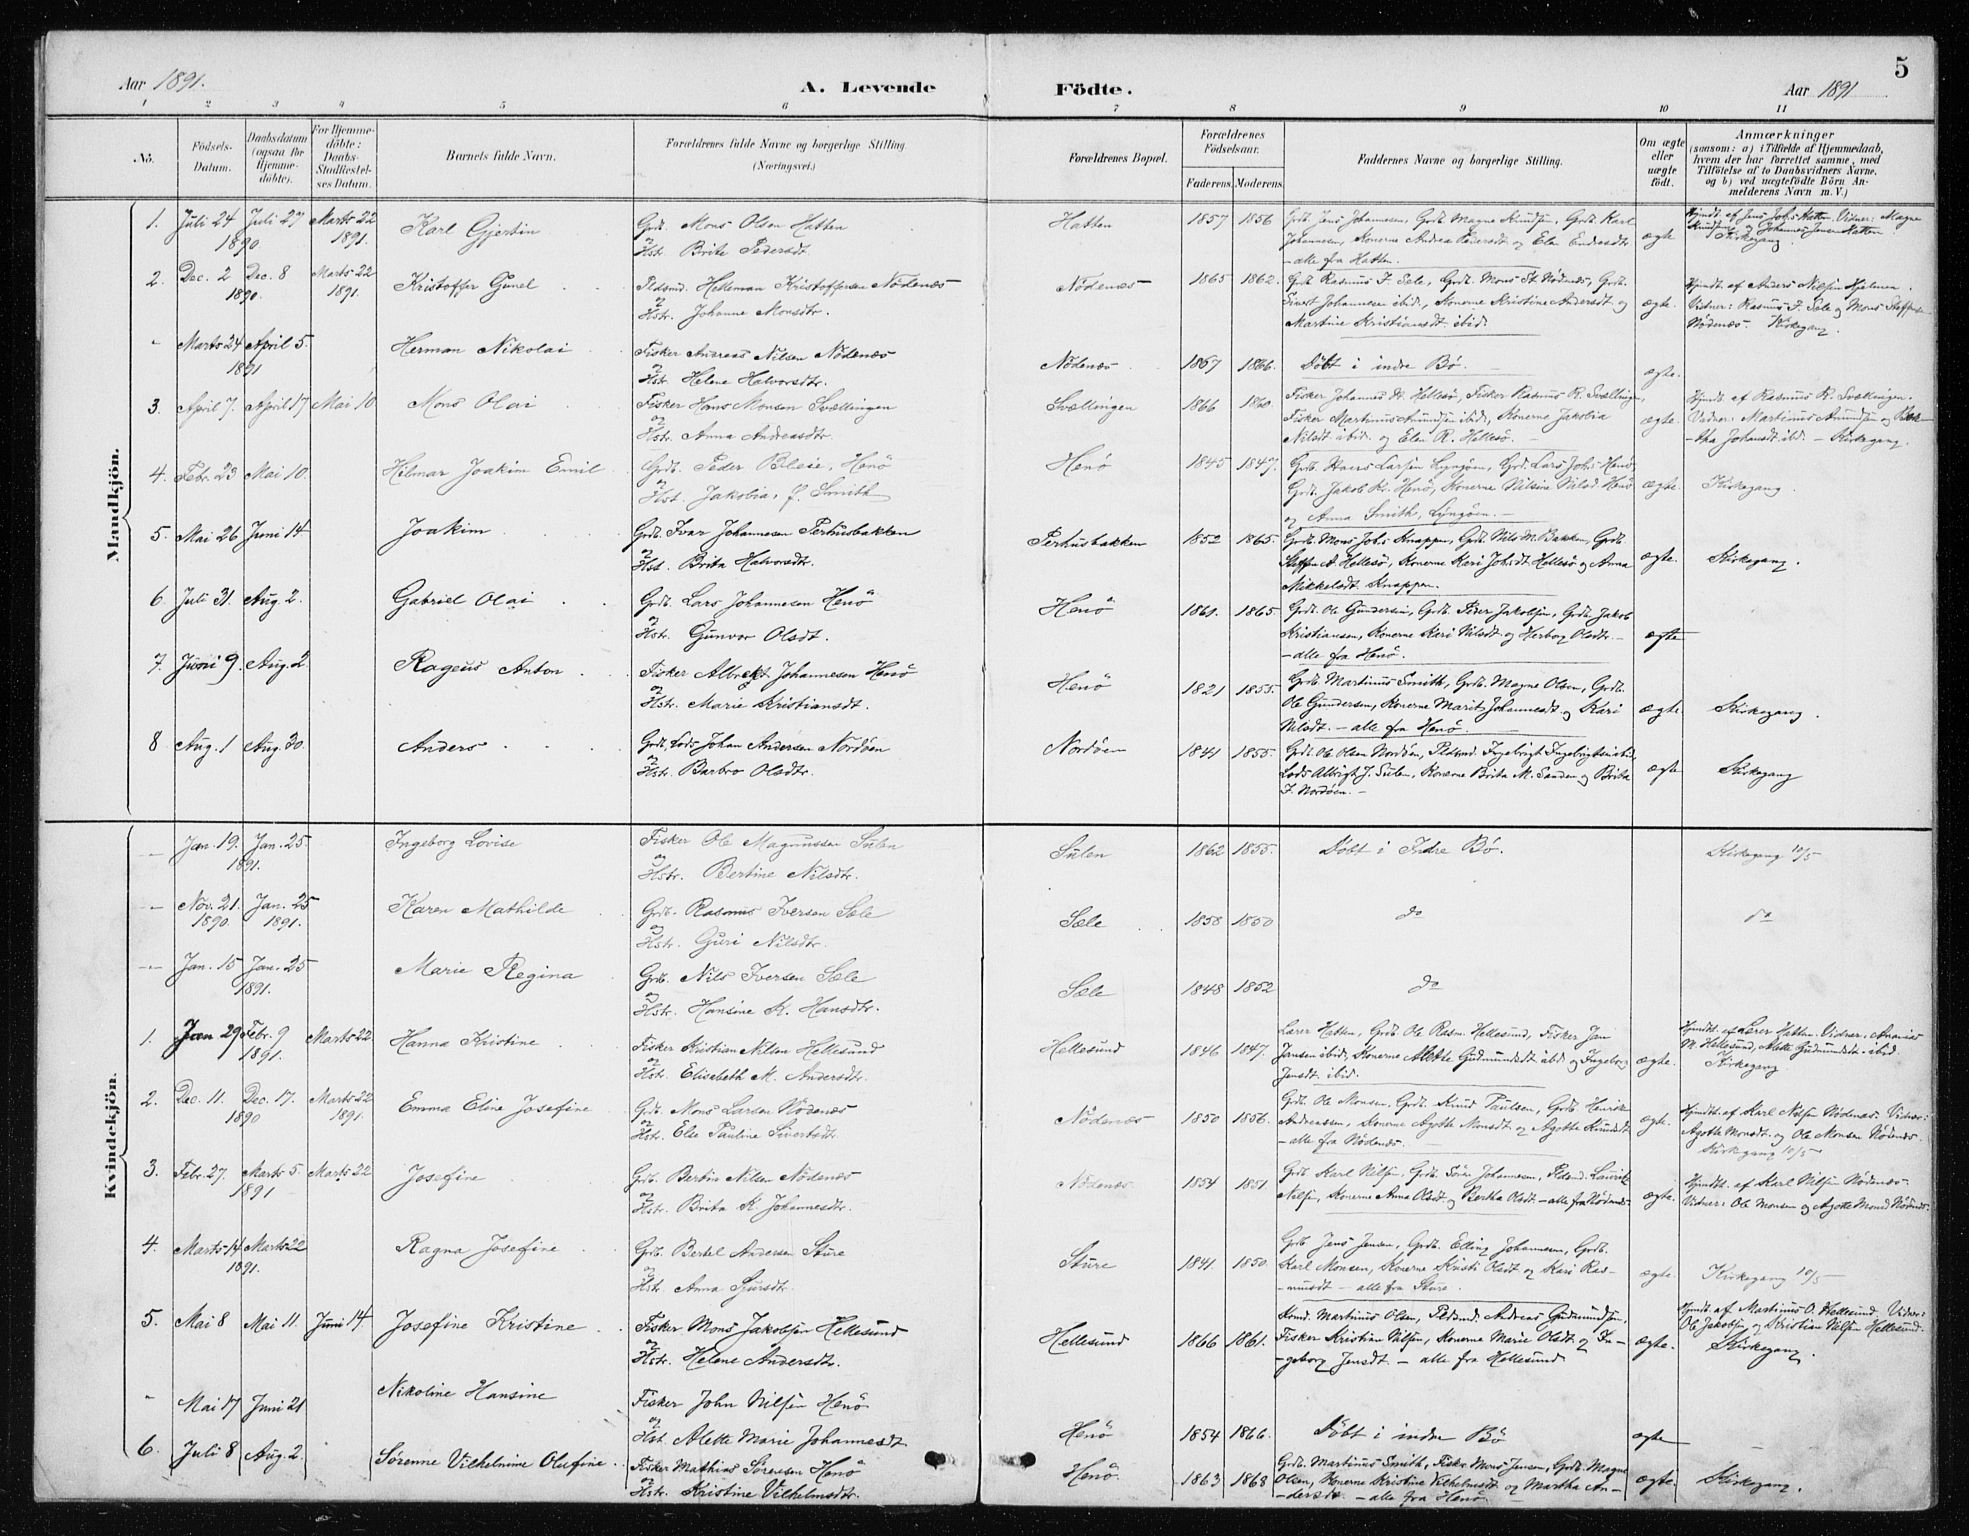 5
Aar 1891.
A. Levende Födte.
Aar 1891
1 2 3 4 5 6 7 8 9 10 11
No.
Födsels-Datum.
Daabsdatum (ogsaa for Hjemme-döbte).
For Hjemme-döbte: Daabs-Stadfæstel-ses Datum.
Barnets fulde Navn.
Forældrenes fulde Navne og borgerlige Stilling. (Næringsvei.)
Forældrenes Bopæl.
Forældrenes Födselsaar.
Faderens. Moderens.
Faddernes Navne og borgerlige Stilling.
Om ægte eller uægte födt.
Anmærkninger
(saasom: a) i Tilfælde af Hjemmedaab,
hvem der har forrettet samme, med
Tilföielse af to Daabsvidners Navne,
og b) ved uægtefödte Börn An-
melderens Navn m. V.)
Mandkjön.
1. Juli 24 1890 Juli 27 Marts 22 1891. Karl Gjertin
Grdb. Mons Olsen Hatten
og Hst. Brite Pedersdt.
Hatten 1857 1856
Grdb. Jens Johannesen, Grdb. Magne Knudsen, Grdb. Karl
Johannesen, Konerne Andrea Pedersdt. og Elen Endresdtr
– alle fra Hatten.
ægte
Hjmdt. af Jens Johs Hatten. Vidner: Magne
Knudsen og Johannes Jensen Hatten.
Kirkegang.
2. Dec. 2 1890. Dec. 8 Marts 22 1891. Kristoffer Gunel
Pldsmd. Helleman Kristoffersen Nödenæs
og Hstr. Johanne Monsdtr.
Nödenæs 1865 1862.
Grdb. Rasmus I. Sele, Grdb. Mons St. Nödenæs, Grdb.
Sivert Johannesen ibid., Konerne Kristine Andersdt. og
Martine Kristiansdt. ibid.
ægte.
Hjmdt. af Anders Nilsen Hjelmen.
Vidner: Rasmus I. Sele og Mons Steffensen
Nödenæs. Kirkegang.
" Marts 24 1891 April 5. Herman Nikolai
Fisker Andreas Nilsen Nödenæs
og Hstr. Helene Halvorsdtr.
Nödenæs 1867 1866. Döbt i indre Bö. ægte.
3. April 7. April 17 Mai 10 Mons Olai
Fisker Hans Monsen Svællingen
og Hstr. Anna Andreasdtr.
Svællingen 1866 1860.
Fisker Johannes H. Hellesö, Fisker Rasmus R. Svællingen,
Fisker Martinus Amundsen ibid., Konerne Jakobia
Nilsdt. ibid. og Elen R. Hellesö. –
ægte.
Hjmdt. af Rasmus R. Svællingen.
Vidner: Martinus Amundsen og
Johansdt. ibid. – Kirkegang.
4. Febr. 23 Mai 10. Hilmar Joakim Emil
Grdb. Peder Bleie, Henö
og Hst. Jakobia, f. Smith
Henö 1845 1847.
Grdb. Hans Larsen Lyngöen, Grdb. Lars Johs Henö,
Grdb. Jakob Kr. Henö, Konerne Nilsine Nilsd. Henö
og Anna Smith, Lyngöen. –
ægte. Kirkegang.
5. Mai 26 Juni 14 Joakim
Grdb. Ivar Johannesen Perhusbakken
og Hst. Brita Halvorsdtr.
Perhusbakken 1852 1865.
Grdb. Mons Johs Knappen, Grdb. Nils M. Bakken, Grdb.
Steffen A. Hellesö, Konerne Keri Johsdt. Hellesö og Anna
Mikkelsdt. Knappen.
ægte. Kirkegang.
6. Juli 31. Aug. 2. Gabriel Olai
Grdb. Lars Johannesen Henö
og Hstr. Gunvor Olsdt.
Henö 1861. 1865
Grdb. Ole Gundersen, Grdb. Peder Jakobsen, Grdb. Jakob
Kristiansen, Konerne Keri Nilsdt. og Herborg Olsdtr. –
– alle fra Henö.
ægte
7. Juni 9. Aug. 2. Rageus Anton
Fisker Albrekt Johannesen Henö
og Hstr. Marie Kristiansdt.
Henö 1821 1855.
Grdb. Martinus Smith, Grdb. Magne Olsen, Grdb.
Ole Gundersen, Konerne Marit Johannesdt. og Kari
Nilsdt. – alle fra Henö.
ægte. Kirkegang.
8 Aug. 1 Aug. 30. Anders
Grdb., Lods Johan Andersen Nordöen
og Hstr. Barbro Olsdtr.
Nordöen 1841 1855.
Grdb. Ole Olsen Nordöen, Pldsmd. Ingebrigt Ingebrigtsen ibid.
Lods Albrigt J. Sulen, Konerne Brita M. Sanden og Brita
I. Nordöen. –
ægte Kirkegang
Kvindekjön.
– Jan. 19. 1891. Jan. 25. Ingeborg Lovise
Fisker Ole Magnussen Sulen
og Hstr. Bertine Nilsdtr.
Sulen 1862 1855. Döbt i Indre Bö. Kirkegang 10/5
– Nov. 21. 1890. Jan. 25 1891. Karen Mathilde
Grdb. Rasmus Iversen Sæle
og Hstr. Guri Nilsdtr.
Sæle 1858 1850 do do
– Jan. 15 Jan. 25 1891. Marie Regina
Grdb. Nils Iversen Sæle
og Hstr. Hansine K. Hansdtr.
Sæle 1848 1852 do
1. Jan 29 Febr. 9 1891. Marts 22 Hanna Kristine
Fisker Kristian Nilsen Hellesund
og Hst. Elisabeth M. Andersdtr.
Hellesund 1846 1847.
Lærer Hatten, Grdb. Ole Rasm. Hellesund, Fisker Jan
Jensen ibid., Konerne Alette Gudmundsdt. ibid. og Ingeborg
Jensdt. ibid.
ægte.
Hjmdt. af Lærer Hatten. Vidner: Ananias
M. Hellesund, Alette Gudmundsdt. ibid.
Kirkegang
2. Dec. 11. 1890 Dec. 17. Marts 22 1891. Emma Eline Josefine
Grdb. Mons Larsen Nödenæs
og Hstr. Else Pauline Sivertsdt.
Nödenæs 1850 1856.
Grdb. Ole Monsen, Grdb. Knud Paulsen, Grdb. Henrik
Andreassen, Konerne Agotte Monsdt. og Agotte Knudsdt
– alle fra Nödenæs. –
ægte.
Hjmdt. af Karl Nilsen Nödenæs. Vidner:
Agotte Monsdt. og Ole Monsen Nödenæs.
Kirkegang 10/5
3. Febr. 27. Marts 5. 1891 Marts 22 Josefine
Grdb. Bertin Nilsen Nödenæs
og Hstr. Brita K. Johannesdtr.
Nödenæs 1854 1851
Grdb. Karl Nilsen, Grdb. Sören Johannesen, Pldsmd. Lauritz
Nilsen, Konerne Anna Olsdt. og Bertha Olsdt. – alle fra Nödenæs.
ægte.
Hjmdt. af Karl Nilsen Nödenæs.
Vidner: Ole Monsen og Agotte Monsd. Nödenæs.
4. Marts 14 1891. Marts 22 Ragna Josefine
Grdb. Bertel Andersen Sture
og Hst. Anna Sjursdt.
Sture 1841. 1850.
Grdb. Jens Jensen, Grdb. Elling Johannesen, Grdb.
Karl Monsen, Konerne Kristi Olsdt. og Kari Ras-
musdt – alle fra Sture.
ægte. Kirkegang 10/5
5. Mai 8 Mai 11. Juni 14. Josefine Kristine
Fisker Mons Jakobsen Hellesund
og Hstr. Helene Andersdt.
Hellesund 1866 1861.
Martinus Olsen, Pldsmd. Andreas Gudmundsen,
Fisker Kristian Nilsen, Konerne Marie Olsdt. og In-
geborg Jensdt. – alle fra Hellesund
ægte.
Hjmdt. af Martinus O. Hellesund. Vidner:
Ole Jakobsen og Kristian Nilsen Hellesund.
Kirkegang.
" Mai 17 Juni 21 Nikoline Hansine
Fisker John Nilsen Henö
og Hst. Alette Marie Johannesdt.
Henö 1854 1866. Döbt i indre Bö ægte
6. Juli 8 Aug. 2. Sörenne Vilhelmine Olufine
Fisker Mathias Sörensen Henö
og Hstr. Kristine Vilhelmsdtr.
Henö. 1863 1868
Grdb. Martinus Smith, Fisker Mons Jensen, Grdb. Magne
Olsen, Konerne Kristine Vilhelmsdt. og Martha An-
dersdt. – alle fra Henö
ægte. Kirkegang.